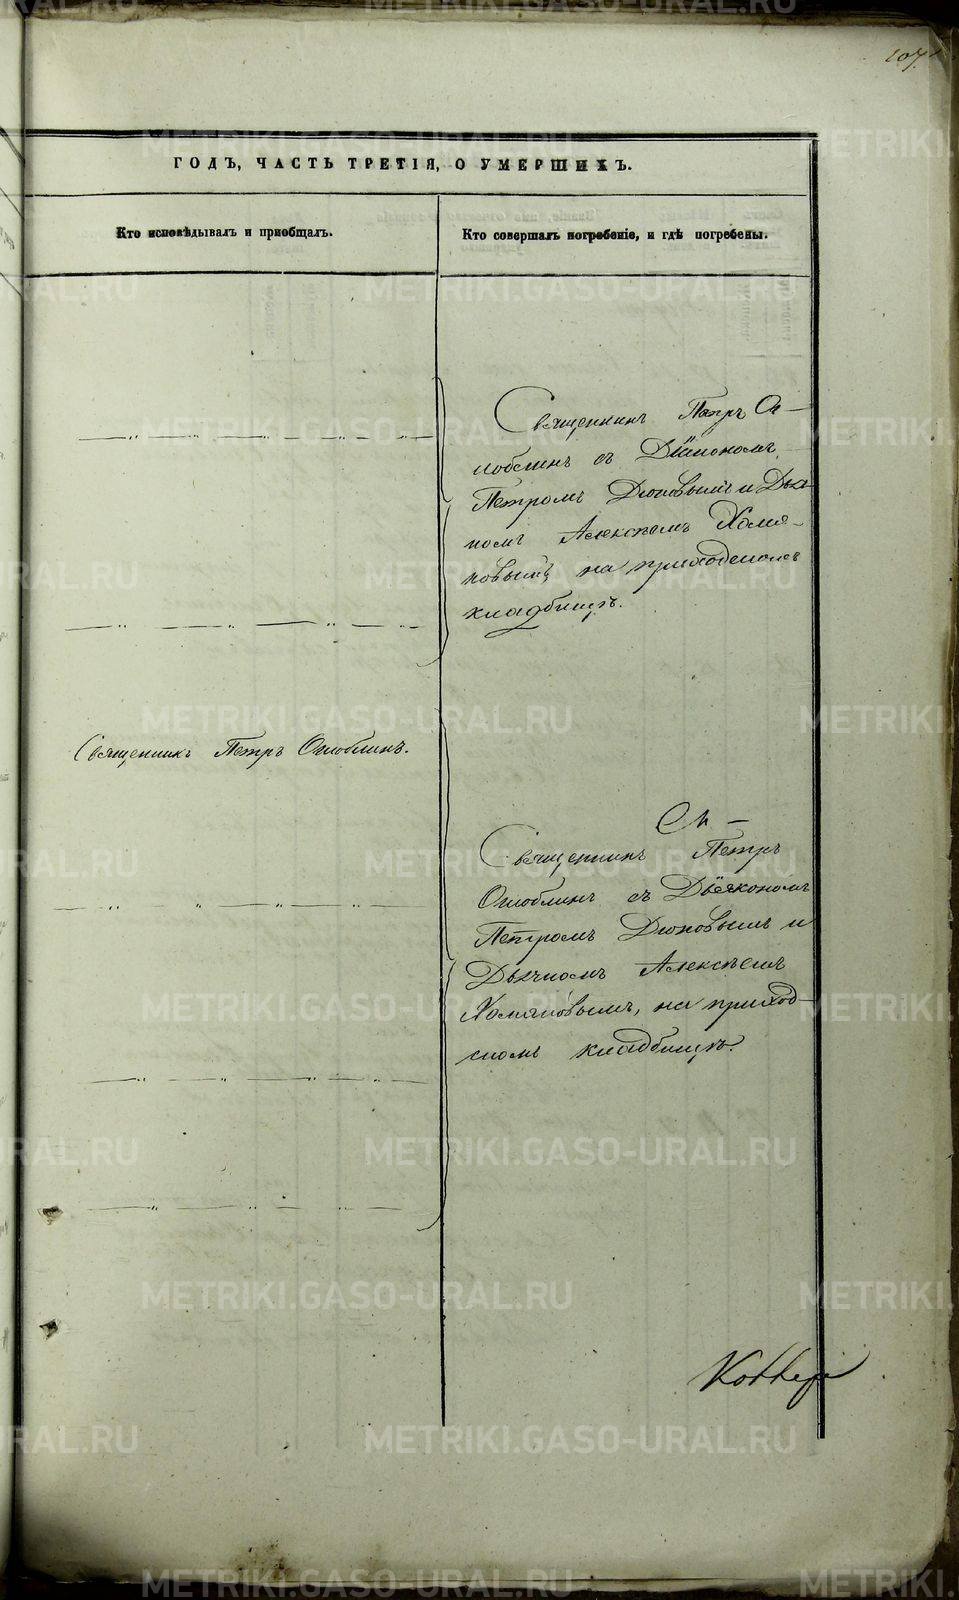 107
ГОДЪ, ЧАСТЬ ТРЕТІЯ, О УМЕРШИХЪ.
Кто исповѣдывалъ и пріобщалъ.
Кто совершалъ погребеніе, и гдѣ погребены.
Священникъ Петръ Ог-
лоблинъ съ Діакономъ
Петромъ Дюковымъ и Дьяч-
комъ Алексѣемъ Хомя-
ковымъ, на приходскомъ
кладбищѣ.
Священникъ Петръ Оглоблинъ.
Священникъ Петръ
Оглоблинъ съ Діякономъ
Петромъ Дюковымъ и
Дьячкомъ Алексѣемъ
Хомяковымъ, на приход-
скомъ кладбищѣ.
METRIKI.GASO-URAL.RU